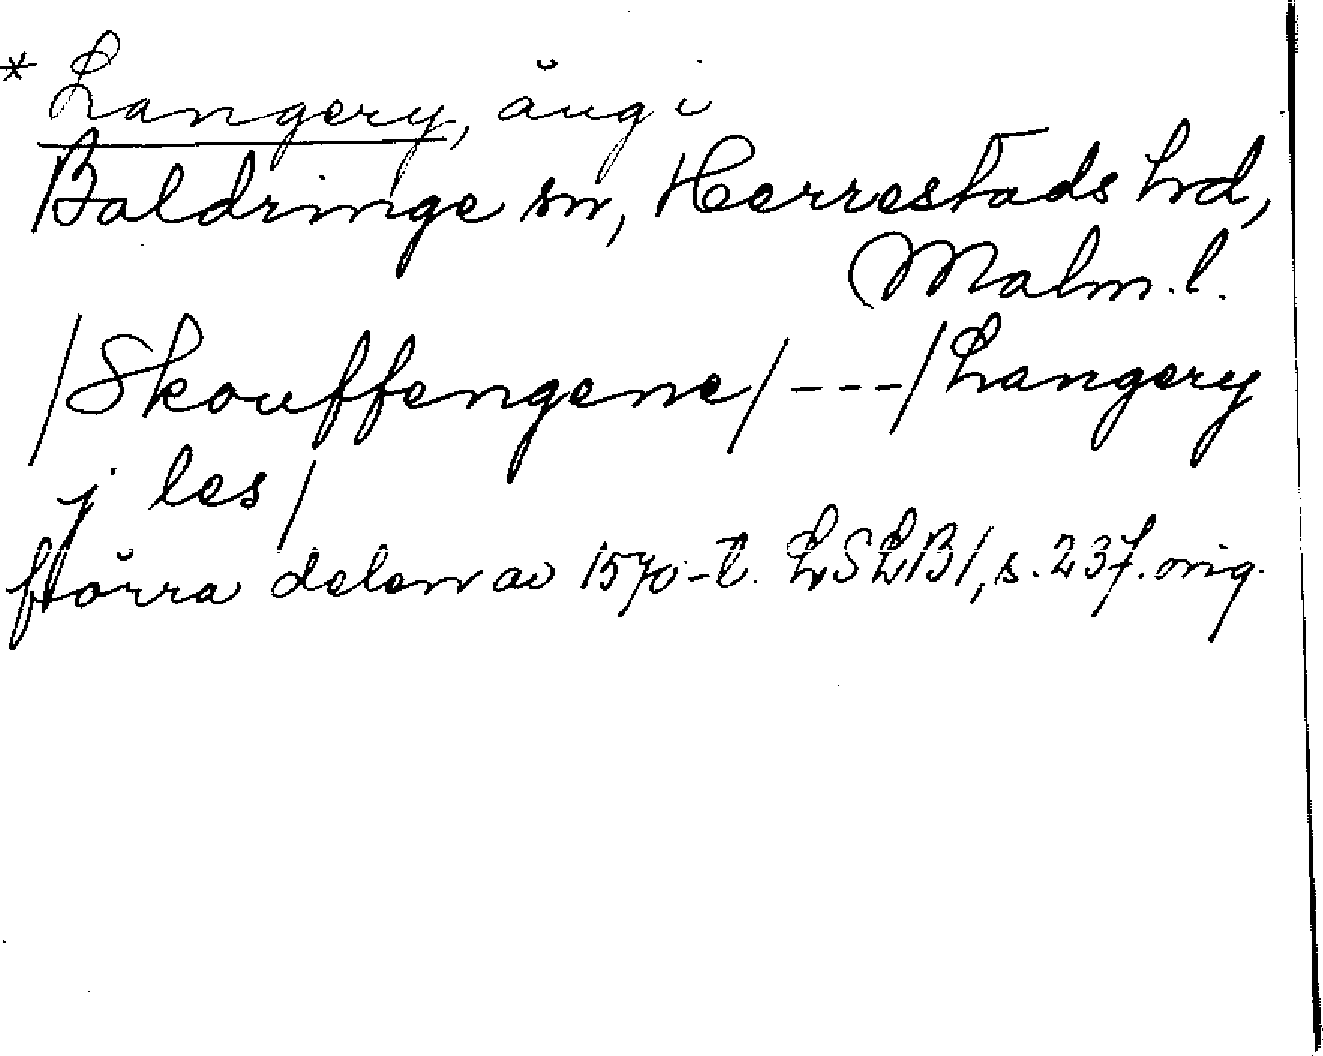 * Langery, äng i
Baldringe sn, Herrestads hrd,
Malm. l.
/Skouffengene/ --- /Langery
j les/
förra delen av 1570-t. LSLB1, s. 237. orig.